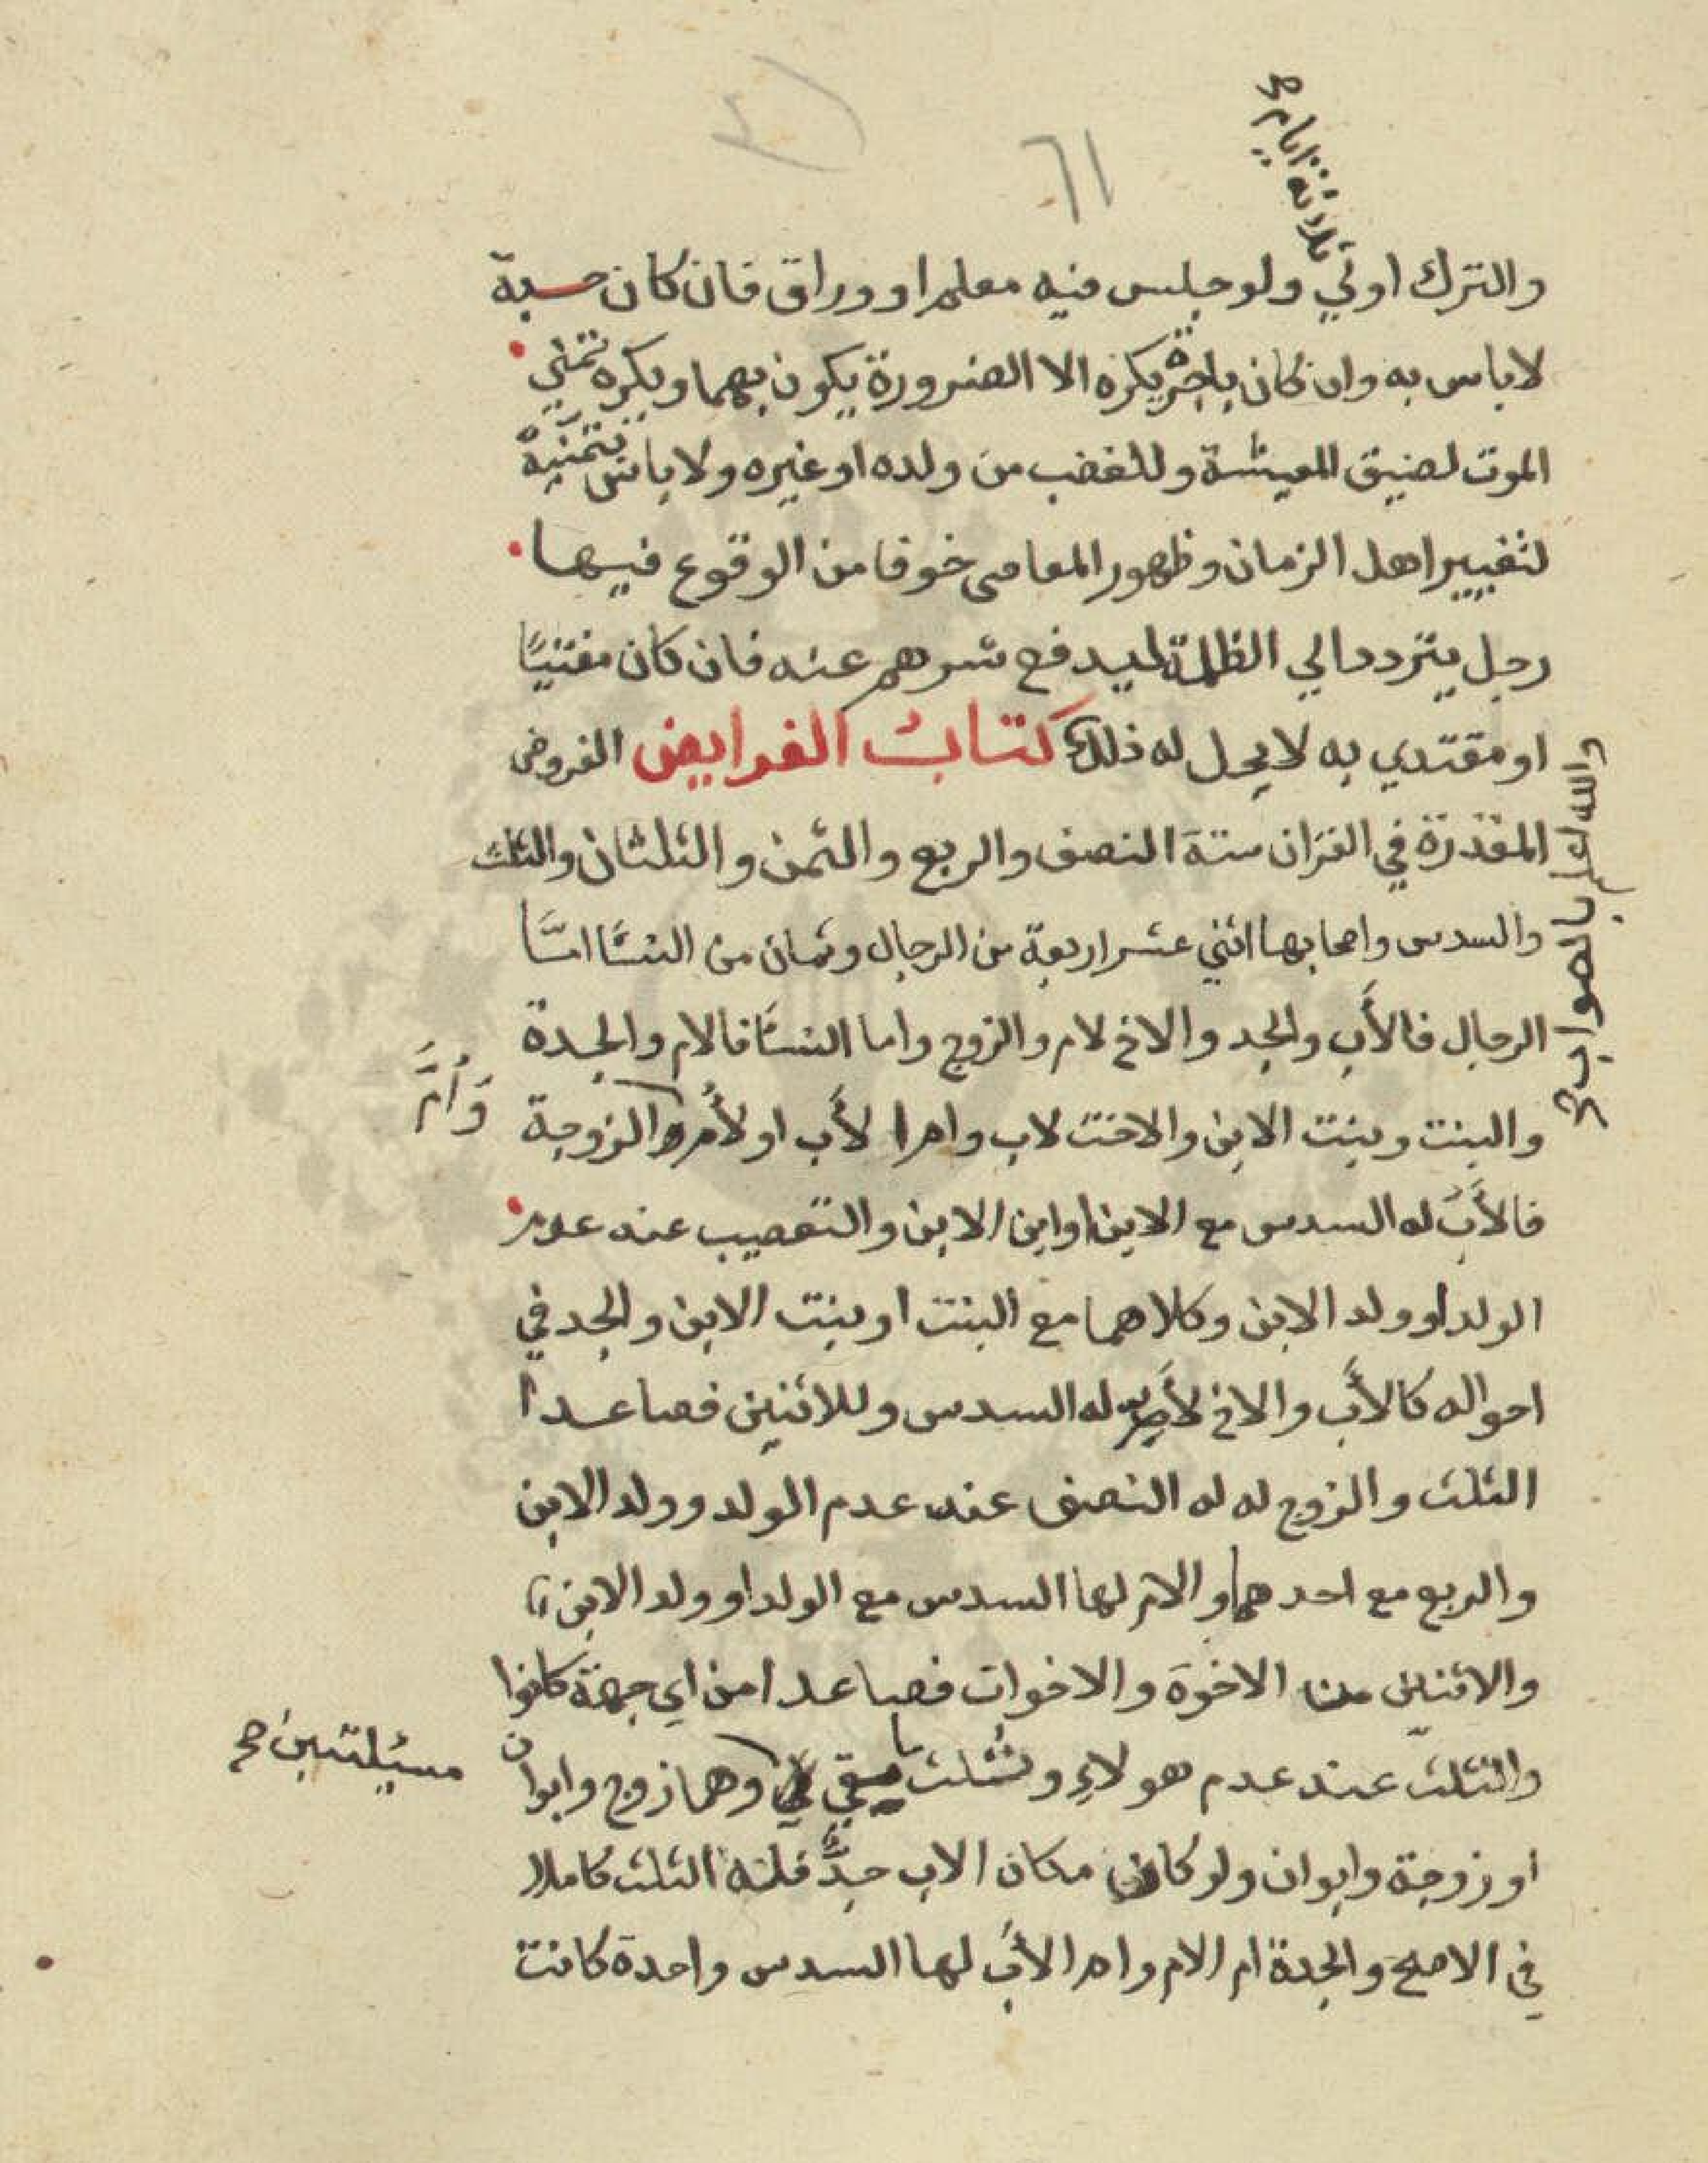 ٦١
ثلاثة ايام صح
والترك اولي ولو جلس فيه معلم او وراق فان كان حسبة
لاباس به وان كان باجرة يكره الا الضرورة يكون بهما ويكره تمني
الموت لضيق المعيشة وللغضب من ولده او غيره ولاباس بتمنيه
لتغيير اهل الزمان وظهور المعاصى خوفا من الوقوع فيها
رجل يتردد الي الظلمة ليدفع شرهم عنه فان كان مفتيًا
او مقتدي به لا يحل له ذلك كتاب الفرايض الفروض
والله اعلم بالصواب صح
المقدرة في القران ستة النصف والربع والثمن والثلثان والثلث
والسدس واصحابها اثني عشر اربعة من الرجال وثمان من النسَّا امَّا
الرجال فالأَب والجد والاخ لام والزوج واما النسَّا فالام والجدة
والبنت وبنت الابن والاخت لاب وام ا لأَب او لأُم والزوجة
وَاُمَّ
فالأَبُ له السدس مع الابن او ابن الابن والتعصيب عنه عدم
الولد او ولد الابن وكلاهما مع البنت او بنت الابن والجد في
احواله كالأَب والاخ لأُم له السدس وللاثنين فصاعدا
الثلث والزوج له له النصف عند عدم الولد وولد الابن
والربع مع احدهما والام لها السدس مع الولد او ولد الابن
والاثنين من الاخوة والاخوات فصاعدا من اي جهة كانوا
والثلث عند عدم هولاءِ وثُلث ما يبقي في وهما زوج وابوان
مسيلتين صح
او زوجة وابوان ولو كان مكان الاب جدٌّ فله الثلث كاملا
في الاصح والجدة ام الام وام الأَب لها السدس واحدة كانت